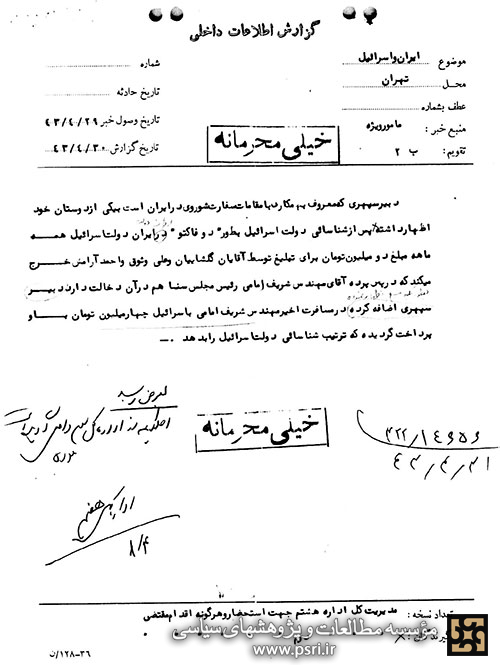 گزارش اطلاعات داخلی
موضوع ایران و اسرائیل
شماره
محل تهران
تاریخ حادثه
عطف بشماره
تاریخ وصول خبر ۴۳/۴/۲۹
منبع خبر: مامور ویژه
تاریخ گزارش ۴۳/۴/۳۰
تقویم: ب ۲
خیلی محرمانه
دبیر سپهری که معروف به همکاری با مقامات سفارت شوروی در ایران است بیکی از دوستان خود
اظهار داشته پس از شناسائی دولت اسرائیل بطور " دو فاکتو " در ایران دولت اسرائیل همه
ماهه مبلغ دو میلیون تومان برای تبلیغ توسط آقایان گشائیان وعلی وثوق واحمد آرامش خرج
میکند که در پس پرده آقای مهندس شریف امامی رئیس مجلس سنا هم در آن دخالت دارد دبیر
سپهری اضافه کرده در مسافرت اخیر مهندس شریف امامی باسرائیل چهار میلیون تومان باو
پرداخت گردیده که ترتیب شناسائی دولت اسرائیل را بدهد .
بعرض رسید
خیلی محرمانه
۳۲۲/۱۴۶۵۶
۴۳/۴/۳۱
اداره کل هفتم
۸/۴
مدیریت کل اداره هشتم جهت استحضار و هرگونه اقدام مقتضی
تعداد نسخه:
مؤسسه مطالعات و پژوهشهای سیاسی
www.psri.ir
۱۲۸-۳۶/ن